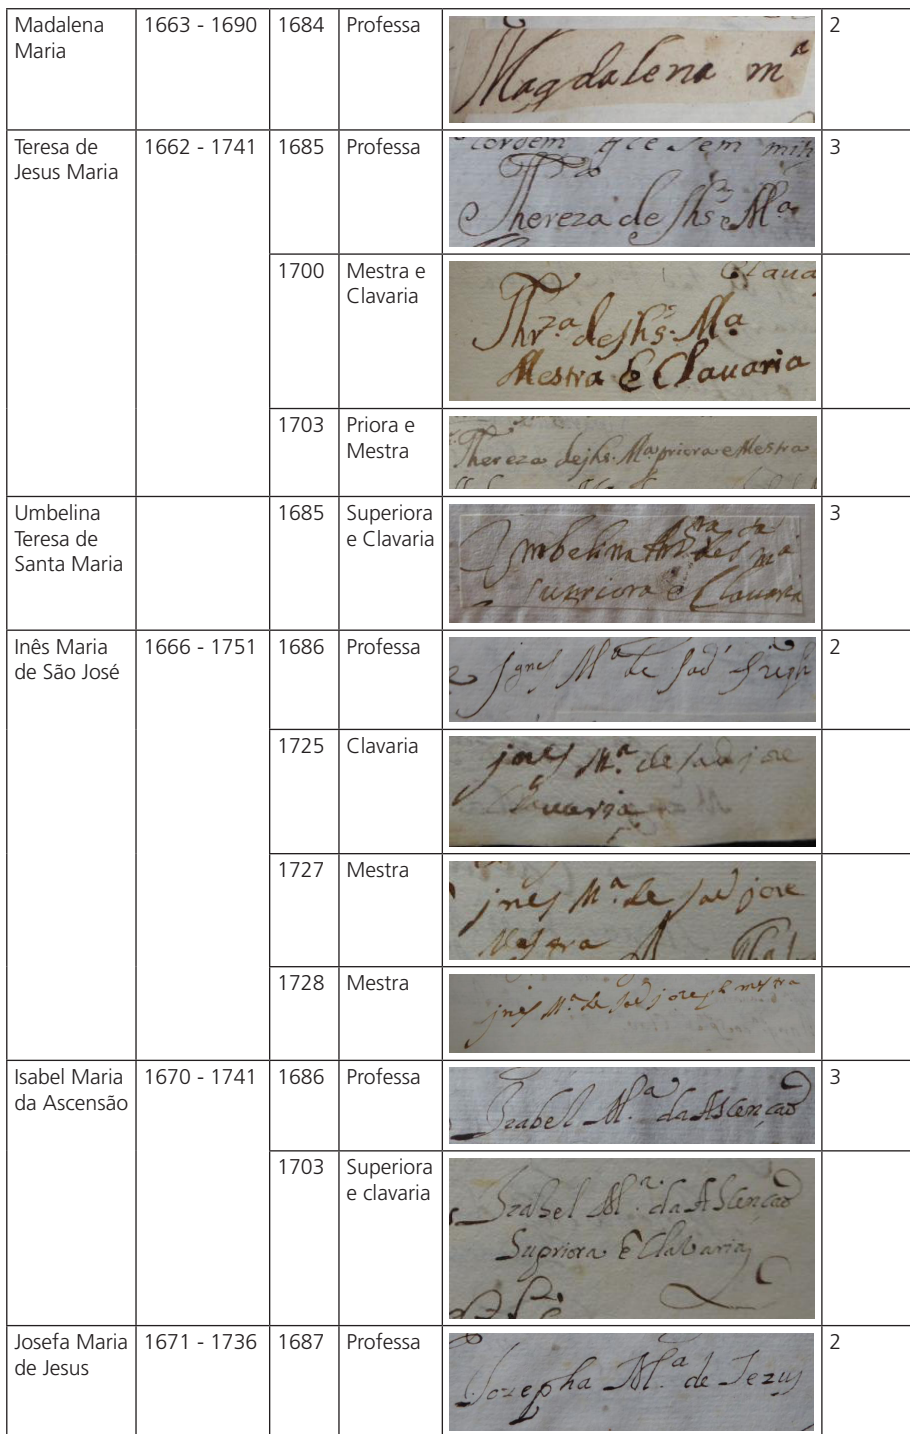 Madalena Maria
1663 - 1690
1684
Professa
Magdalena mª
2
Teresa de Jesus Maria
1662 - 1741
1685
Professa
Thereza de Jhs Mª
3
1700
Mestra e Clavaria
Claua
Thrzª de jhs. Mª
Mestra E Clauaria
1703
Priora e Mestra
Thereza de jhs. Mª priora e Mestra
Umbelina Teresa de Santa Maria
1685
Superiora e Clavaria
Umbelina
supriora e Clauaria
3
Inês Maria de São José
1666 - 1751
1686
Professa
Ignes Mª de
2
1725
Clavaria
jnes Mª de sao jose
Clauaria
1727
Mestra
jnes Mª de sao jose
Mestra
1728
Mestra
jnes Mª de sao joseph mestra
Isabel Maria da Ascensão
1670 - 1741
1686
Professa
Izabel Mª da Ascençaõ
3
1703
Superiora e clavaria
Izabel Mª da Ascençaõ
Supriora E Clauaria
Josefa Maria de Jesus
1671 - 1736
1687
Professa
Jozepha Mª de Jezus
2